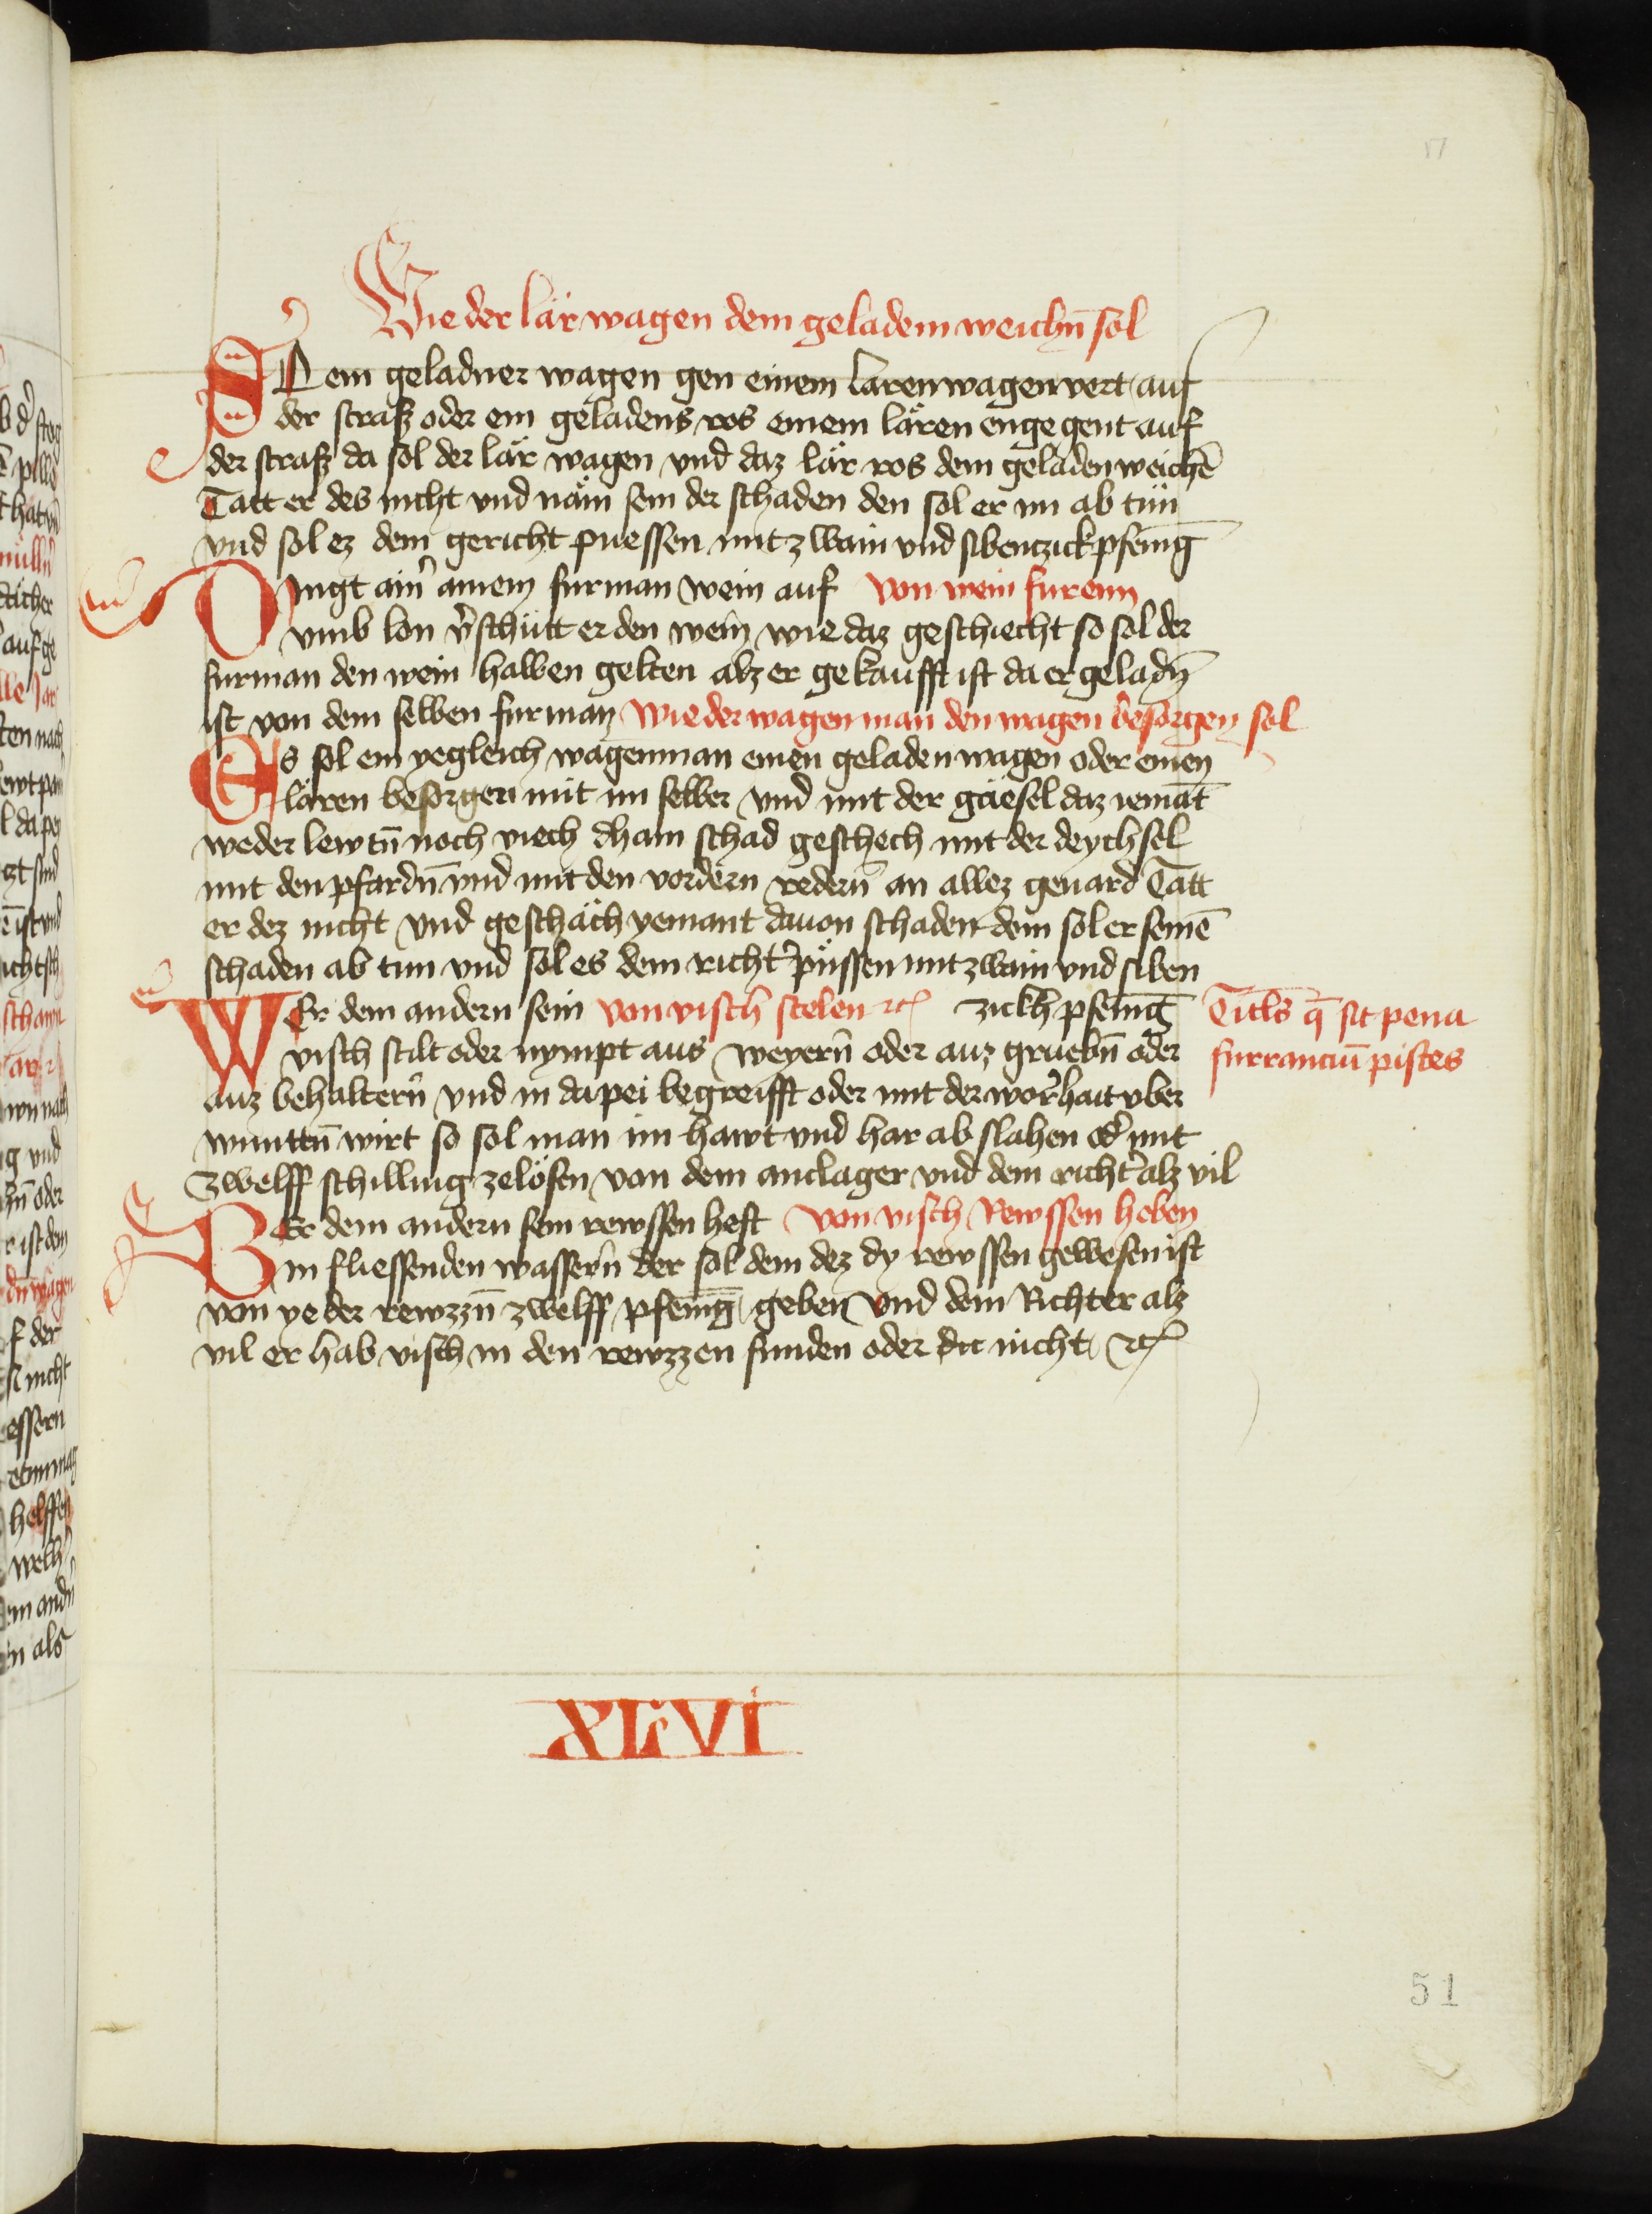 Wie der lär wagen dem geladem weichn̄ sol
So ein geladner wagen gen einem lären wagen vert auf
der straß oder ein geladens ros einem lären engegent auf
der straß da sol der lär wagen vnd daz lär ros dem geladen weichē
Tätt er des nicht vnd näm sein der schaden den sol er im ab tün
vnd sol ez dem gericht puessen mit zwain vnd sibentzick pfenīg
Dingt ain̄ ainem furman wein auf von wein furenn
vmb lon v̄schütt er den wein wie daz geschiecht so sol der
furman den wein halben gelten alz er gekaufft ist da er geladn̄
ist von dem selben furman wie der wagen man den wagen besorgen sol
Es sol ein yegleich wagenman einen geladen wagen oder einen
lären besorgen mit im selber vnd mit der gäesel daz iemāt
weder lewtn̄ noch viech dhain schad geschech mit der deychsel
mit den pfardn̄ vnd mit den vordern redern̄ an allez geuard Tätt
er dez nicht vnd geschäch yemant dauon schaden dem sol er seinē
schaden ab tun vnd sol es dem richt̄ püssen mit zwain vnd siben
Wer dem andern sein von visch stelen ꝛc zickh pfenīg
visch stilt oder nympt aus weyern̄ oder auz gruebn̄ oder
auz behaltern̄ vnd in da pei begreifft oder mit der worhait vber
wunttn̄ wirt so sol man im hawt vnd har ab slahen od̄ mit
zwelff schilling zelösen von dem anclager vnd dem richt̄ alz vil
Titls̄ q̄ sit pena
furranciū pistes
Wer dem andern sein rewssen heft von visch Rewssen heben
in fliessenden wassern̄ der sol dem dez dy rewssen gewesen ist
von yeder rewzzn̄ zwelff pfenīg geben vnd dem Richter alz
vil er hab visch in den rewzzen funden oder nicht ꝛc
XLVI
51